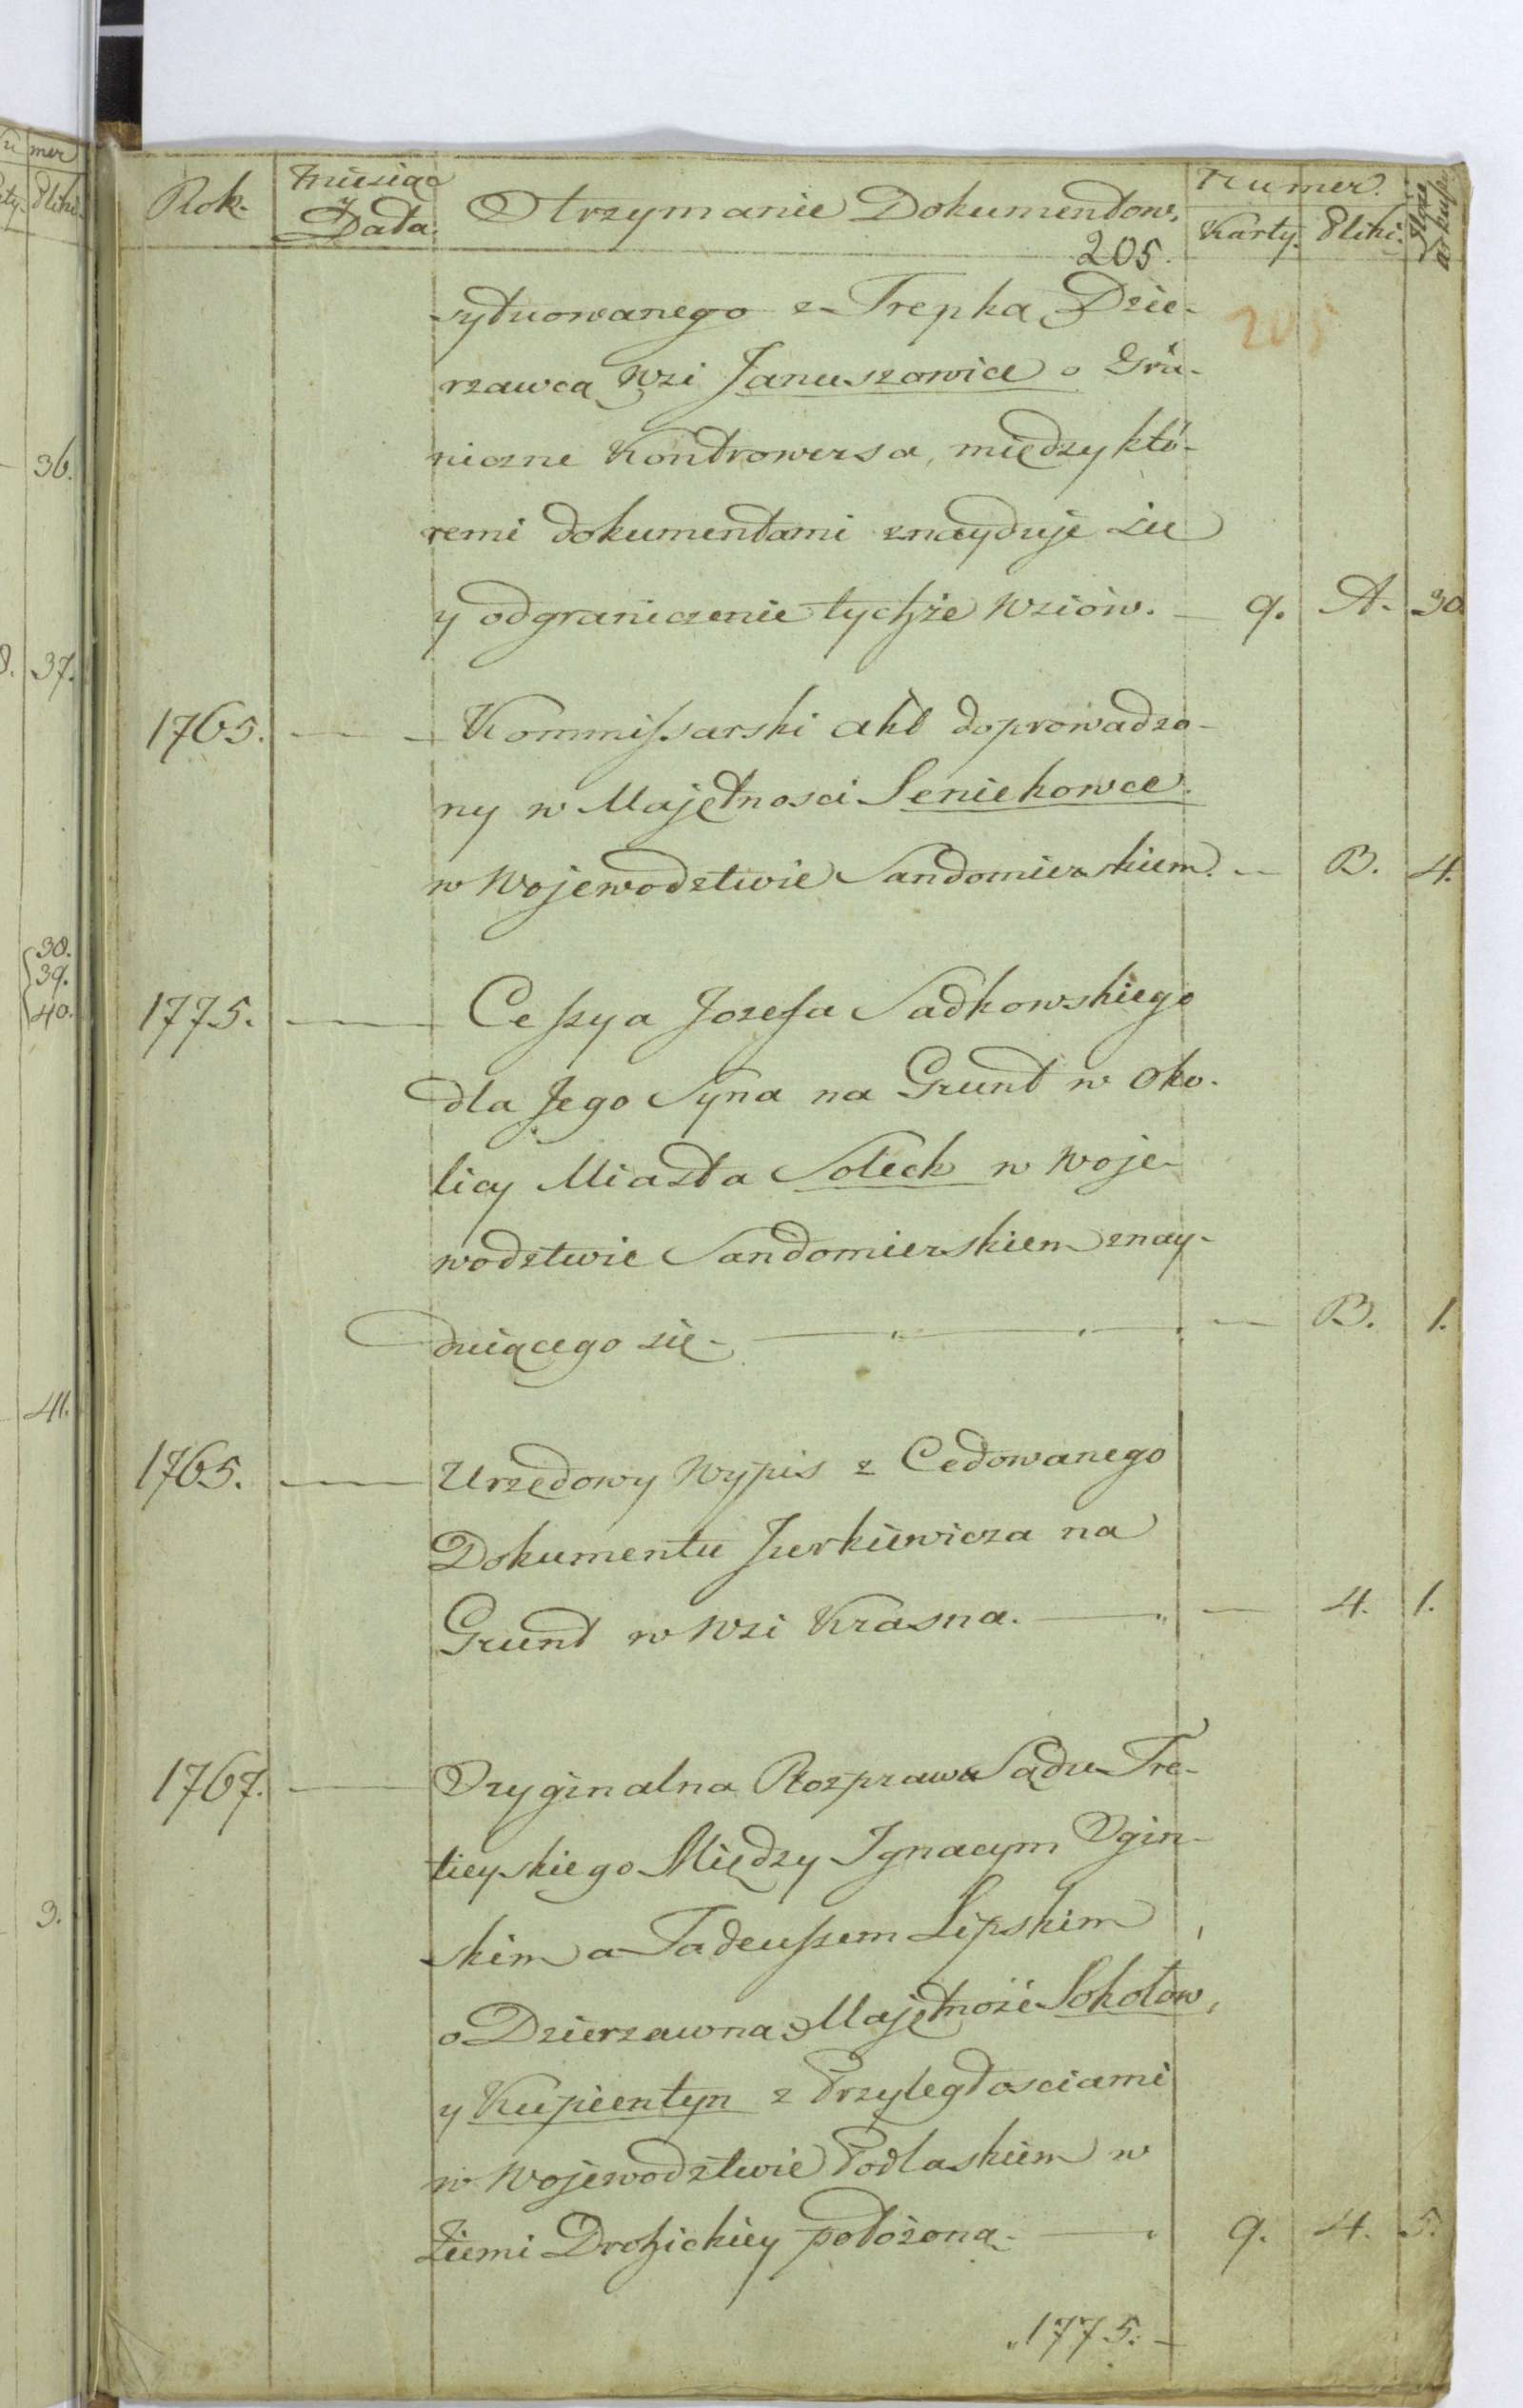 mer
Pliki.
36.
37.
38.
39.
40.
41.
3.
Rok. Miesiąc y Data. Otrzymanie Dokumentow. Numer. Karty. Pliki. Ilość arkusz:
205.
205
sytuowanego z Trepką Dzie-
rzawcą Wzi Januszowice o Gra-
niczne Kontrowersa, między któ-
remi dokumentami znayduje sie
y odgraniczenie tychże Wziów. — 9. A. 30
1765. — Kommissarski akt doprowadzo-
ny w Majętnosci Seniekowce.
w Wojewodztwie Sandomierskiem. — B. 4.
1775. — Cessya Jozefa Sadkowskiego
dla Jego Syna na Grunt w oko-
licy Miasta Soleck w Woje-
wodztwie Sandomierskiem znay-
duiącego się — B. 1.
1765. — Urzędowy Wypis z Cedowanego
Dokumentu Jurkiewicza na
Grunt w Wzi Krasna. — 4. 1.
1767. — Oryginalna Rozprawa Sądu Tre-
lieyskiego Między Ignacym Ogin-
skim a Tadeuszem Lipskim
o Dzierzawną Majętność Sokołow,
y Kupientyn z Przyległosciami
w Wojewodztwie Podlaskiem w
Ziemi Drohickiey położoną — 9. 4. 5.
1775. —